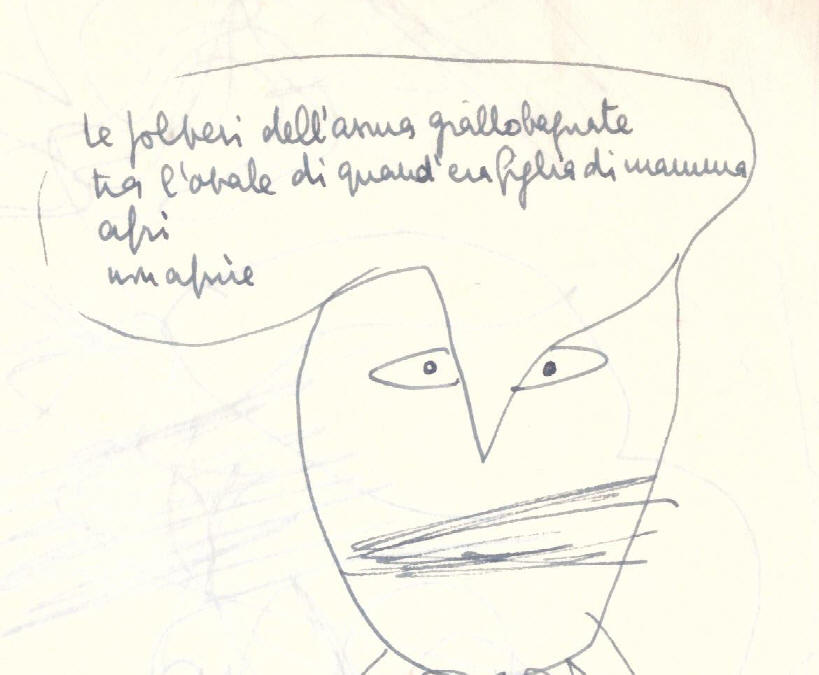 le polveri dell'asma giallobagnate
tra l'ovale di quand'era figlia di mamma
apri
non aprire